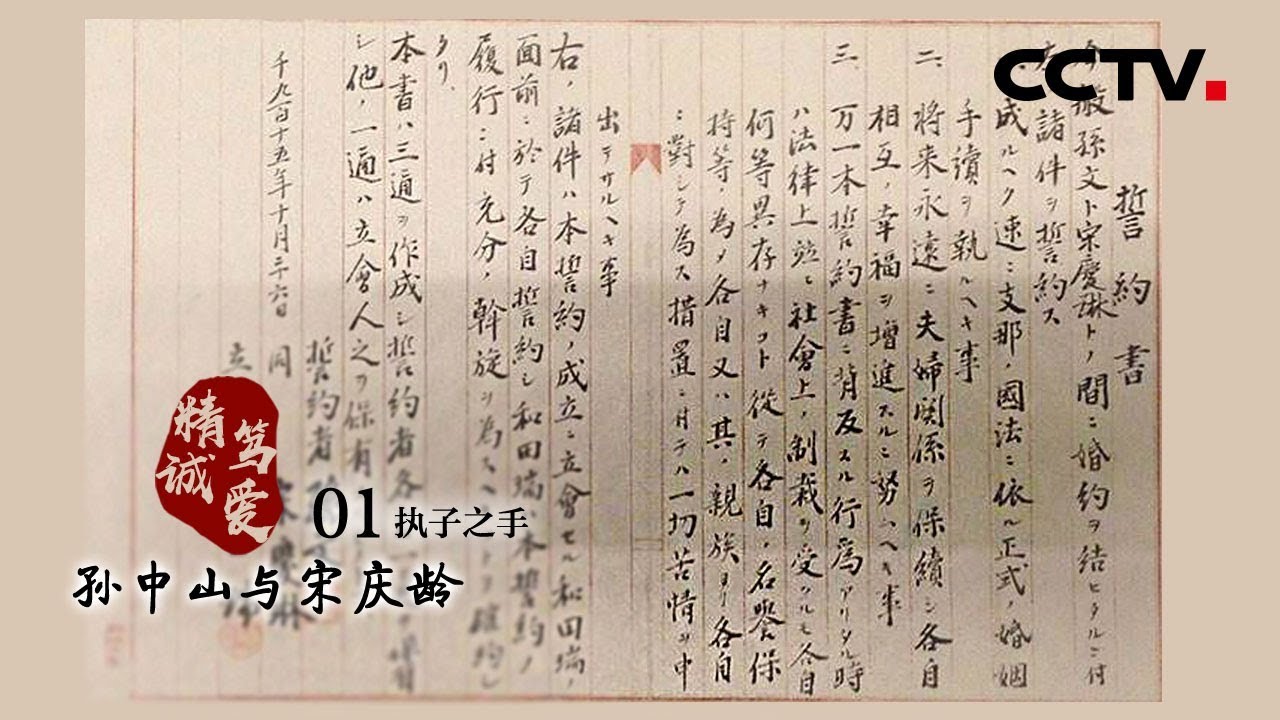 CCTV.
誓約書
般孫文ト宋慶琳トノ間ニ婚約ヲ結ヒタルニ付
諸件ヲ誓約ス
成ルヘク速ニ支那ノ國法ニ依ル正式ノ婚姻
手續ヲ執ルヘキ事
二、将来永遠ニ夫婦関係ヲ保續シ各自
相互ノ幸福ヲ增進スルニ努ムヘキ事
三、万一本誓約書ニ背反スル行為アリタル時
ハ法律上並ニ社會上ノ制裁ヲ受クルモ各自
何等異存ナキコト從テ各自ノ名譽保
持等ノ為メ各自又ハ其ノ親族ヨリ各自
ニ對シテ為ス措置ニ付テハ一切苦情ヲ申
出テサルヘキ事
右ノ諸件ハ本誓約ノ成立ニ立會セル和田瑞ノ
面前ニ於テ各自誓約シ和田瑞ハ本誓約ノ
履行ニ付充分ノ斡旋ヲ為スヘキコトヲ確約シ
タリ、
本書ハ三通ヲ作成シ誓約者各一
シ他ノ一通ハ立會人之ヲ保有
千九百十五年十月二十六日
誓約者
同
立
精诚笃爱
01 执子之手
孙中山与宋庆龄